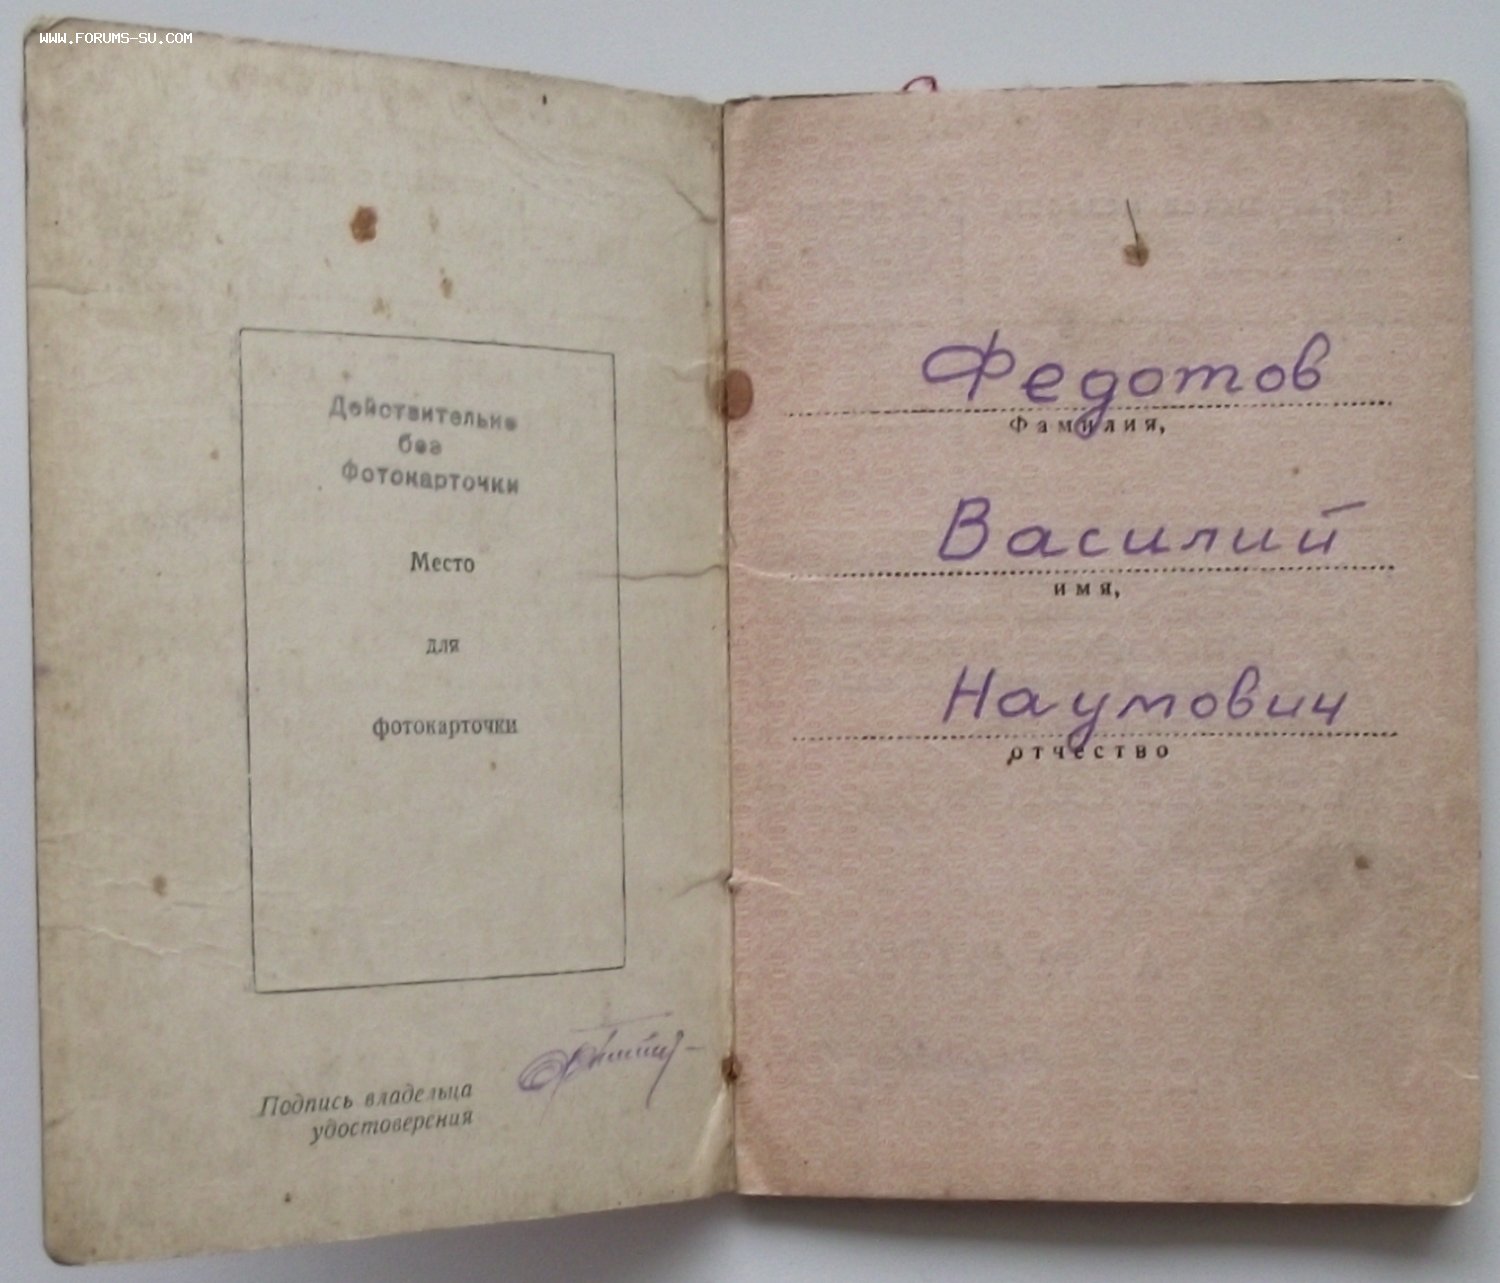 WWW.FORUMS-SU.COM
Действительно
без
Фотокарточки
Место
для
фотокарточки
Подпись владельца
удостоверения
Федотов
Фамилия,
Василий
имя,
Наумович
отчество